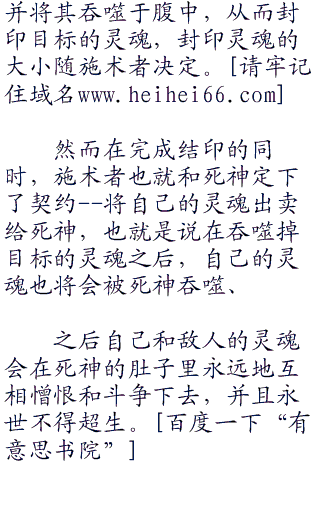 并将其吞噬于腹中，从而封
印目标的灵魂，封印灵魂的
大小随施术者决定。[请牢记
住域名www.heihei66.com]
然而在完成结印的同
时，施术者也就和死神定下
了契约--将自己的灵魂出卖
给死神，也就是说在吞噬掉
目标的灵魂之后，自己的灵
魂也将会被死神吞噬、
之后自己和敌人的灵魂
会在死神的肚子里永远地互
相憎恨和斗争下去，并且永
世不得超生。[百度一下“有
意思书院”]